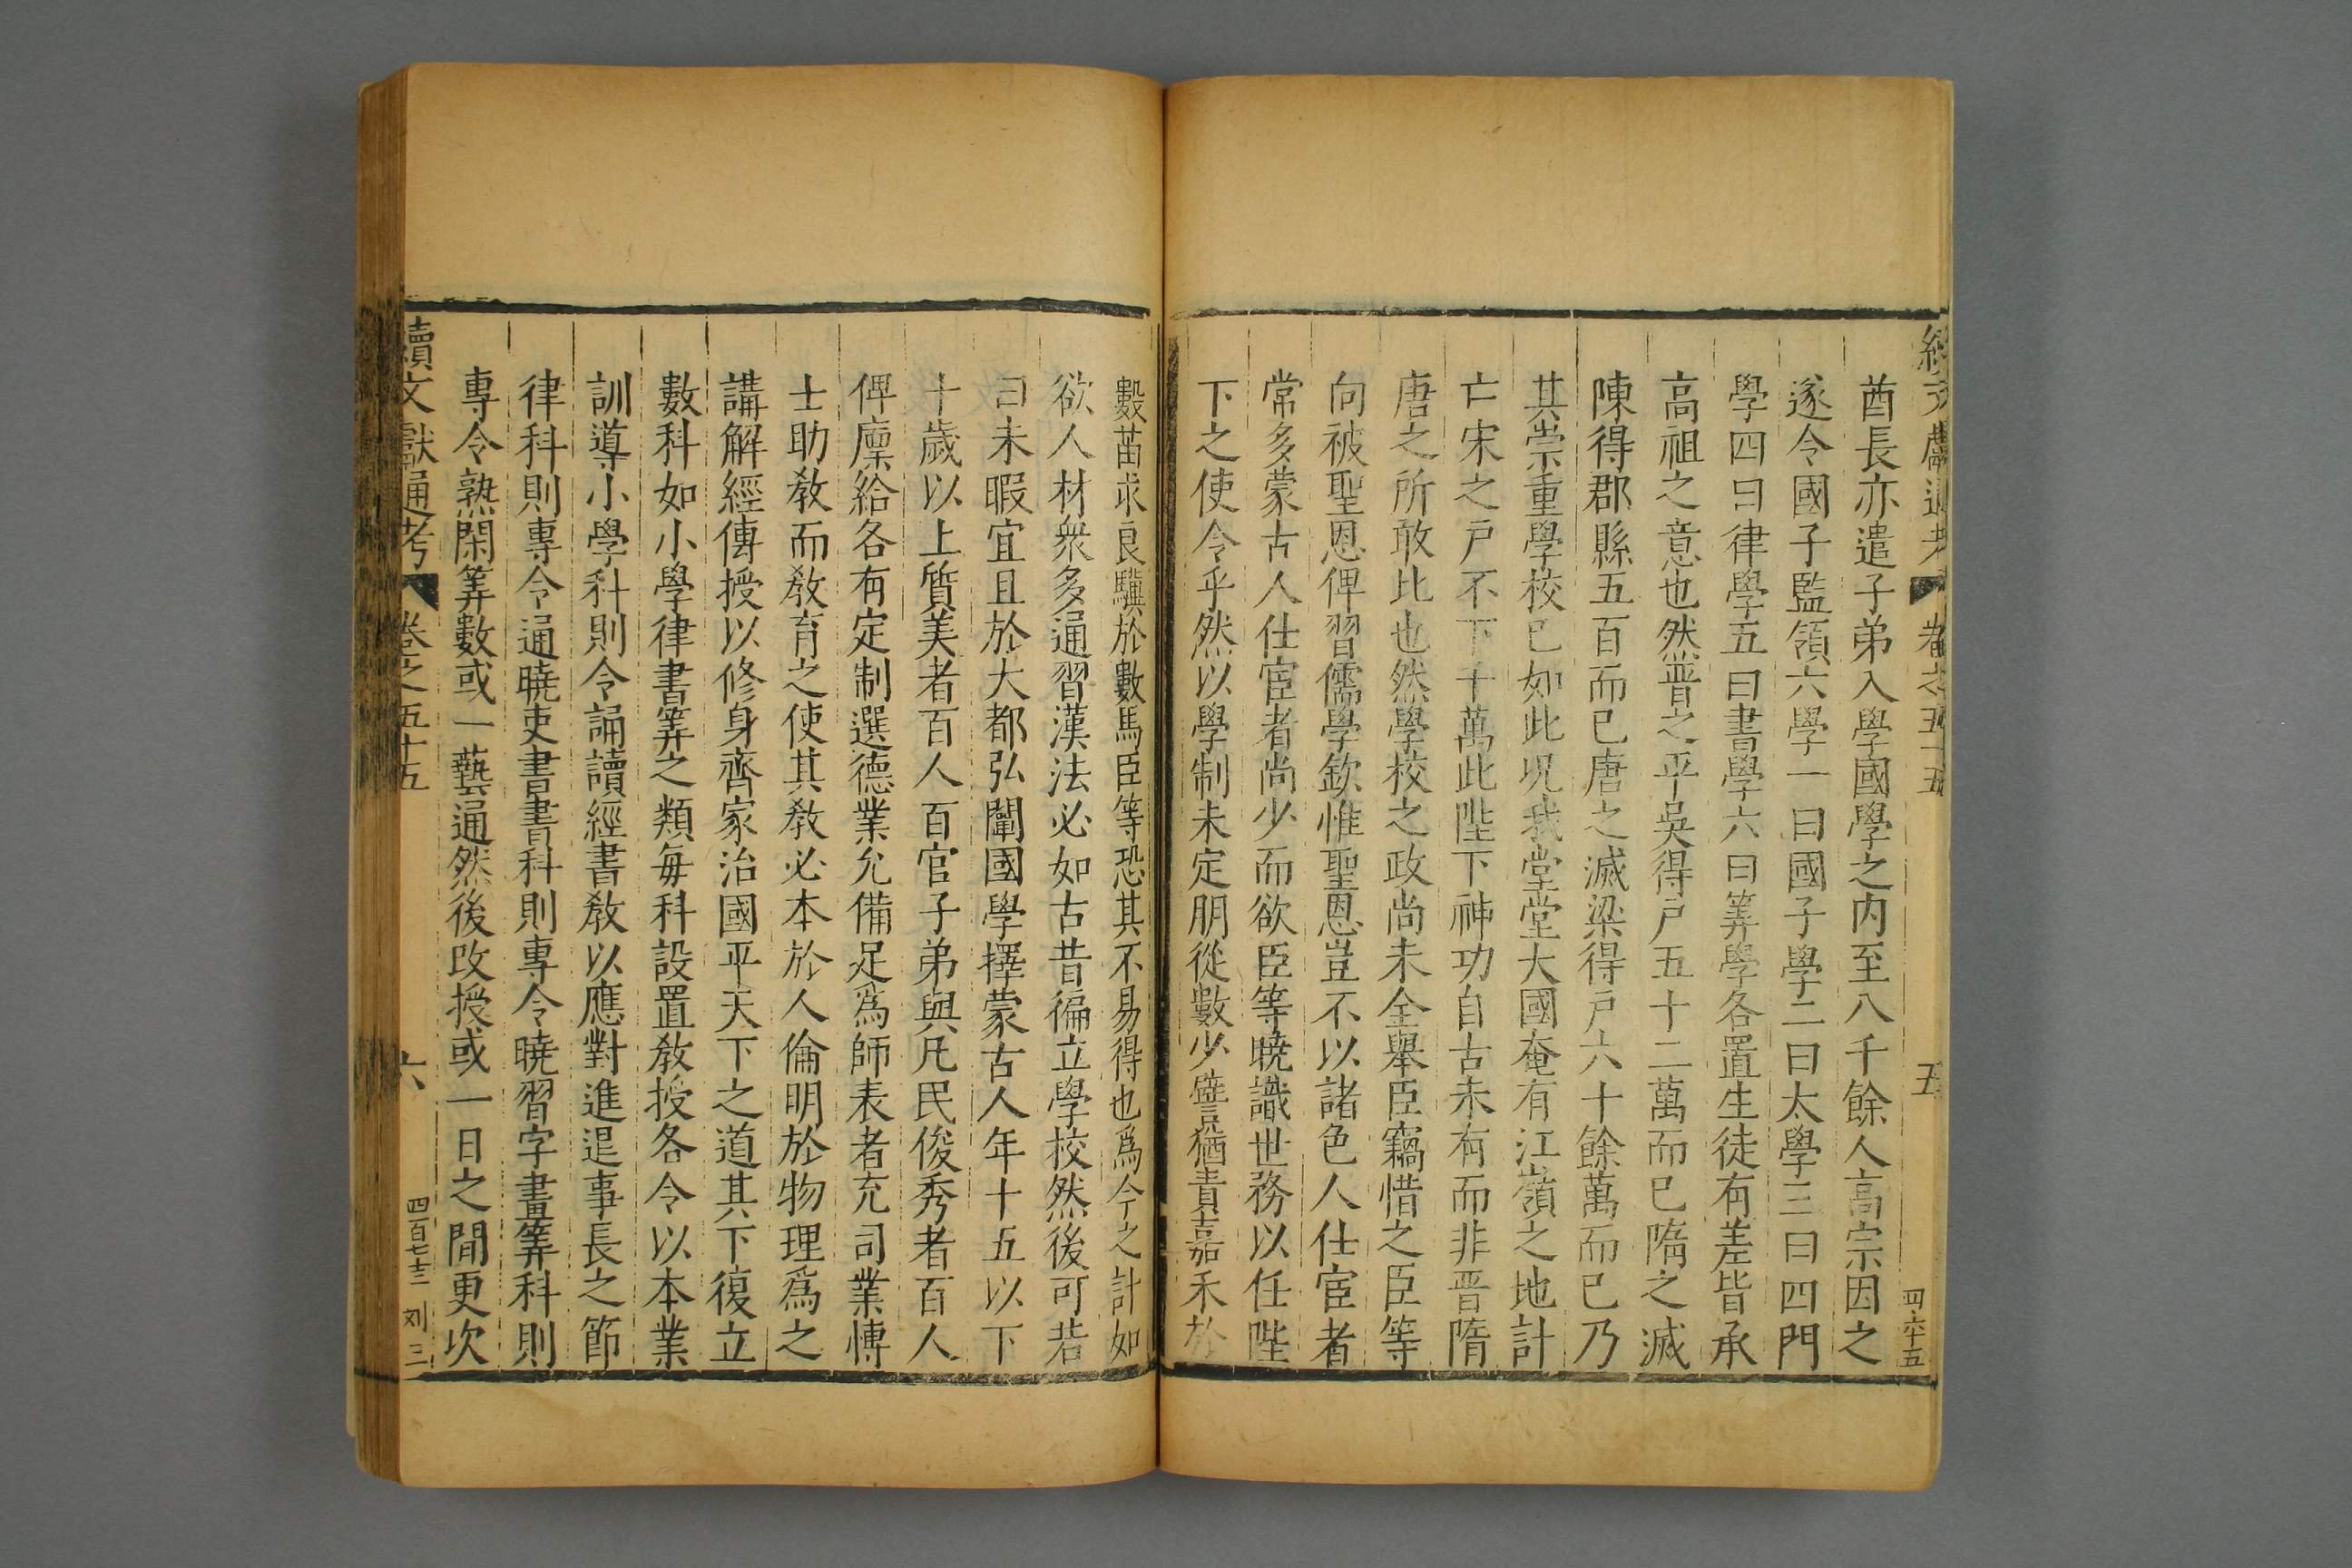 續文獻通考 卷之五十五 五 四六十五
酋長亦遣子弟入學國學之內至八千餘人高宗因之
遂令國子監領六學一曰國子學二曰太學三曰四門
學四曰律學五曰書學六曰筭學各置生徒有差皆承
高祖之意也然晉之平吳得戶五十二萬而已隋之滅
陳得郡縣五百而已唐之滅梁得戶六十餘萬而已乃
其崇重學校已如此况我堂堂大國奄有江嶺之地計
亡宋之戶不下千萬此陛下神功自古未有而非晋隋
唐之所敢比也然學校之政尚未全舉臣竊惜之臣等
向被聖恩俾習儒學欽惟聖恩豈不以諸色人仕宦者
常多蒙古人仕宦者尚少而欲臣等曉識世務以任陛
下之使令乎然以學制未定朋從數少譬猶責嘉禾於
數苗求良驥於數馬臣等恐其不易得也爲今之計如
欲人材衆多通習漢法必如古昔徧立學校然後可若
曰未暇宜且於大都弘闡國學擇蒙古人年十五以下
十歲以上質美者百人百官子弟與凡民俊秀者百人
俾廩給各有定制選德業允備足爲師表者充司業博
士助教而教育之使其教必本於人倫明於物理爲之
講解經傳授以修身齊家治國平天下之道其下復立
數科如小學律書筭之類每科設置教授各令以本業
訓導小學科則令誦讀經書教以應對進退事長之節
律科則專令通曉吏書書科則專令曉習字畫筭科則
專令熟閑筭數或一藝通然後改授或一日之間更次
續文獻通考 卷之五十五 六 四百七十三 刘三